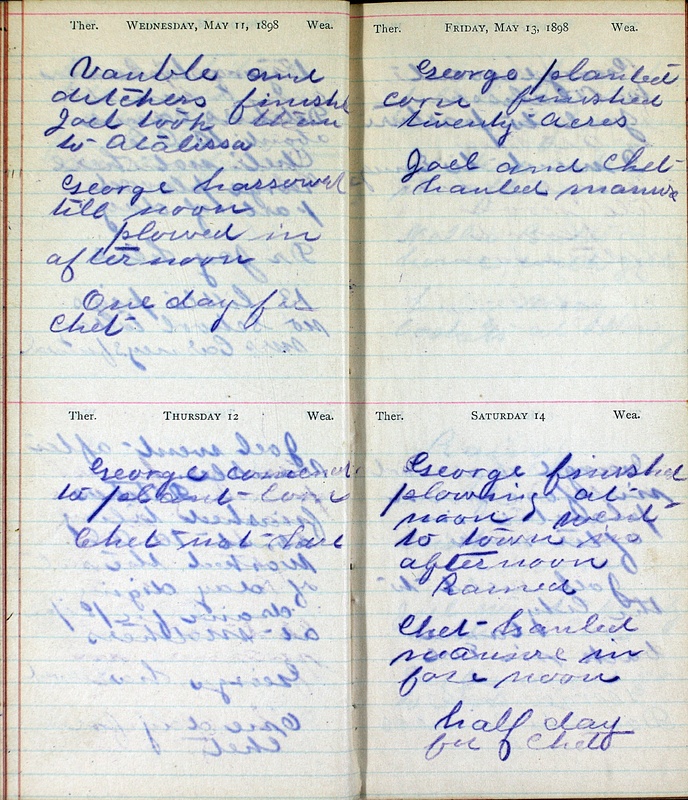 Ther. WEDNESDAY, MAY 11, 1898 Wea.
Vauble and
ditchers finishe
Joel took them
to Atalissa
George harrowed
till noon
plowed in
afternoon
One day for
Chet
Ther. THURSDAY 12 Wea.
George comenc
to plant corn
Chet not here
Ther. FRIDAY, MAY 13, 1898 Wea.
George planted
corn finished
twenty acres
Joel and Chet
hauled manure
Ther. SATURDAY 14 Wea.
George finished
plowing at
noon & went
to town
afternoon
Rained
Chet hauled
manure in
fore noon
half day
for Chet